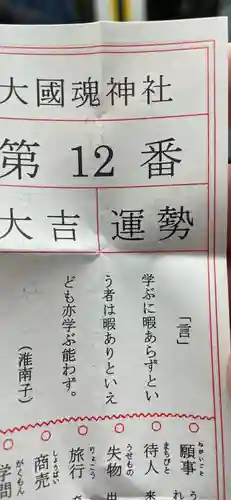 大國魂神社
第 12 番
大吉
運勢
「言」
学ぶに暇あらずとい
う者は暇ありといえ
ども亦学ぶ能わず。
（淮南子）
願事 う
ねがいごと
待人 来
まちびと
失物 出
うせもの
旅行
りょこう
商売
しょうばい
学問
がくもん